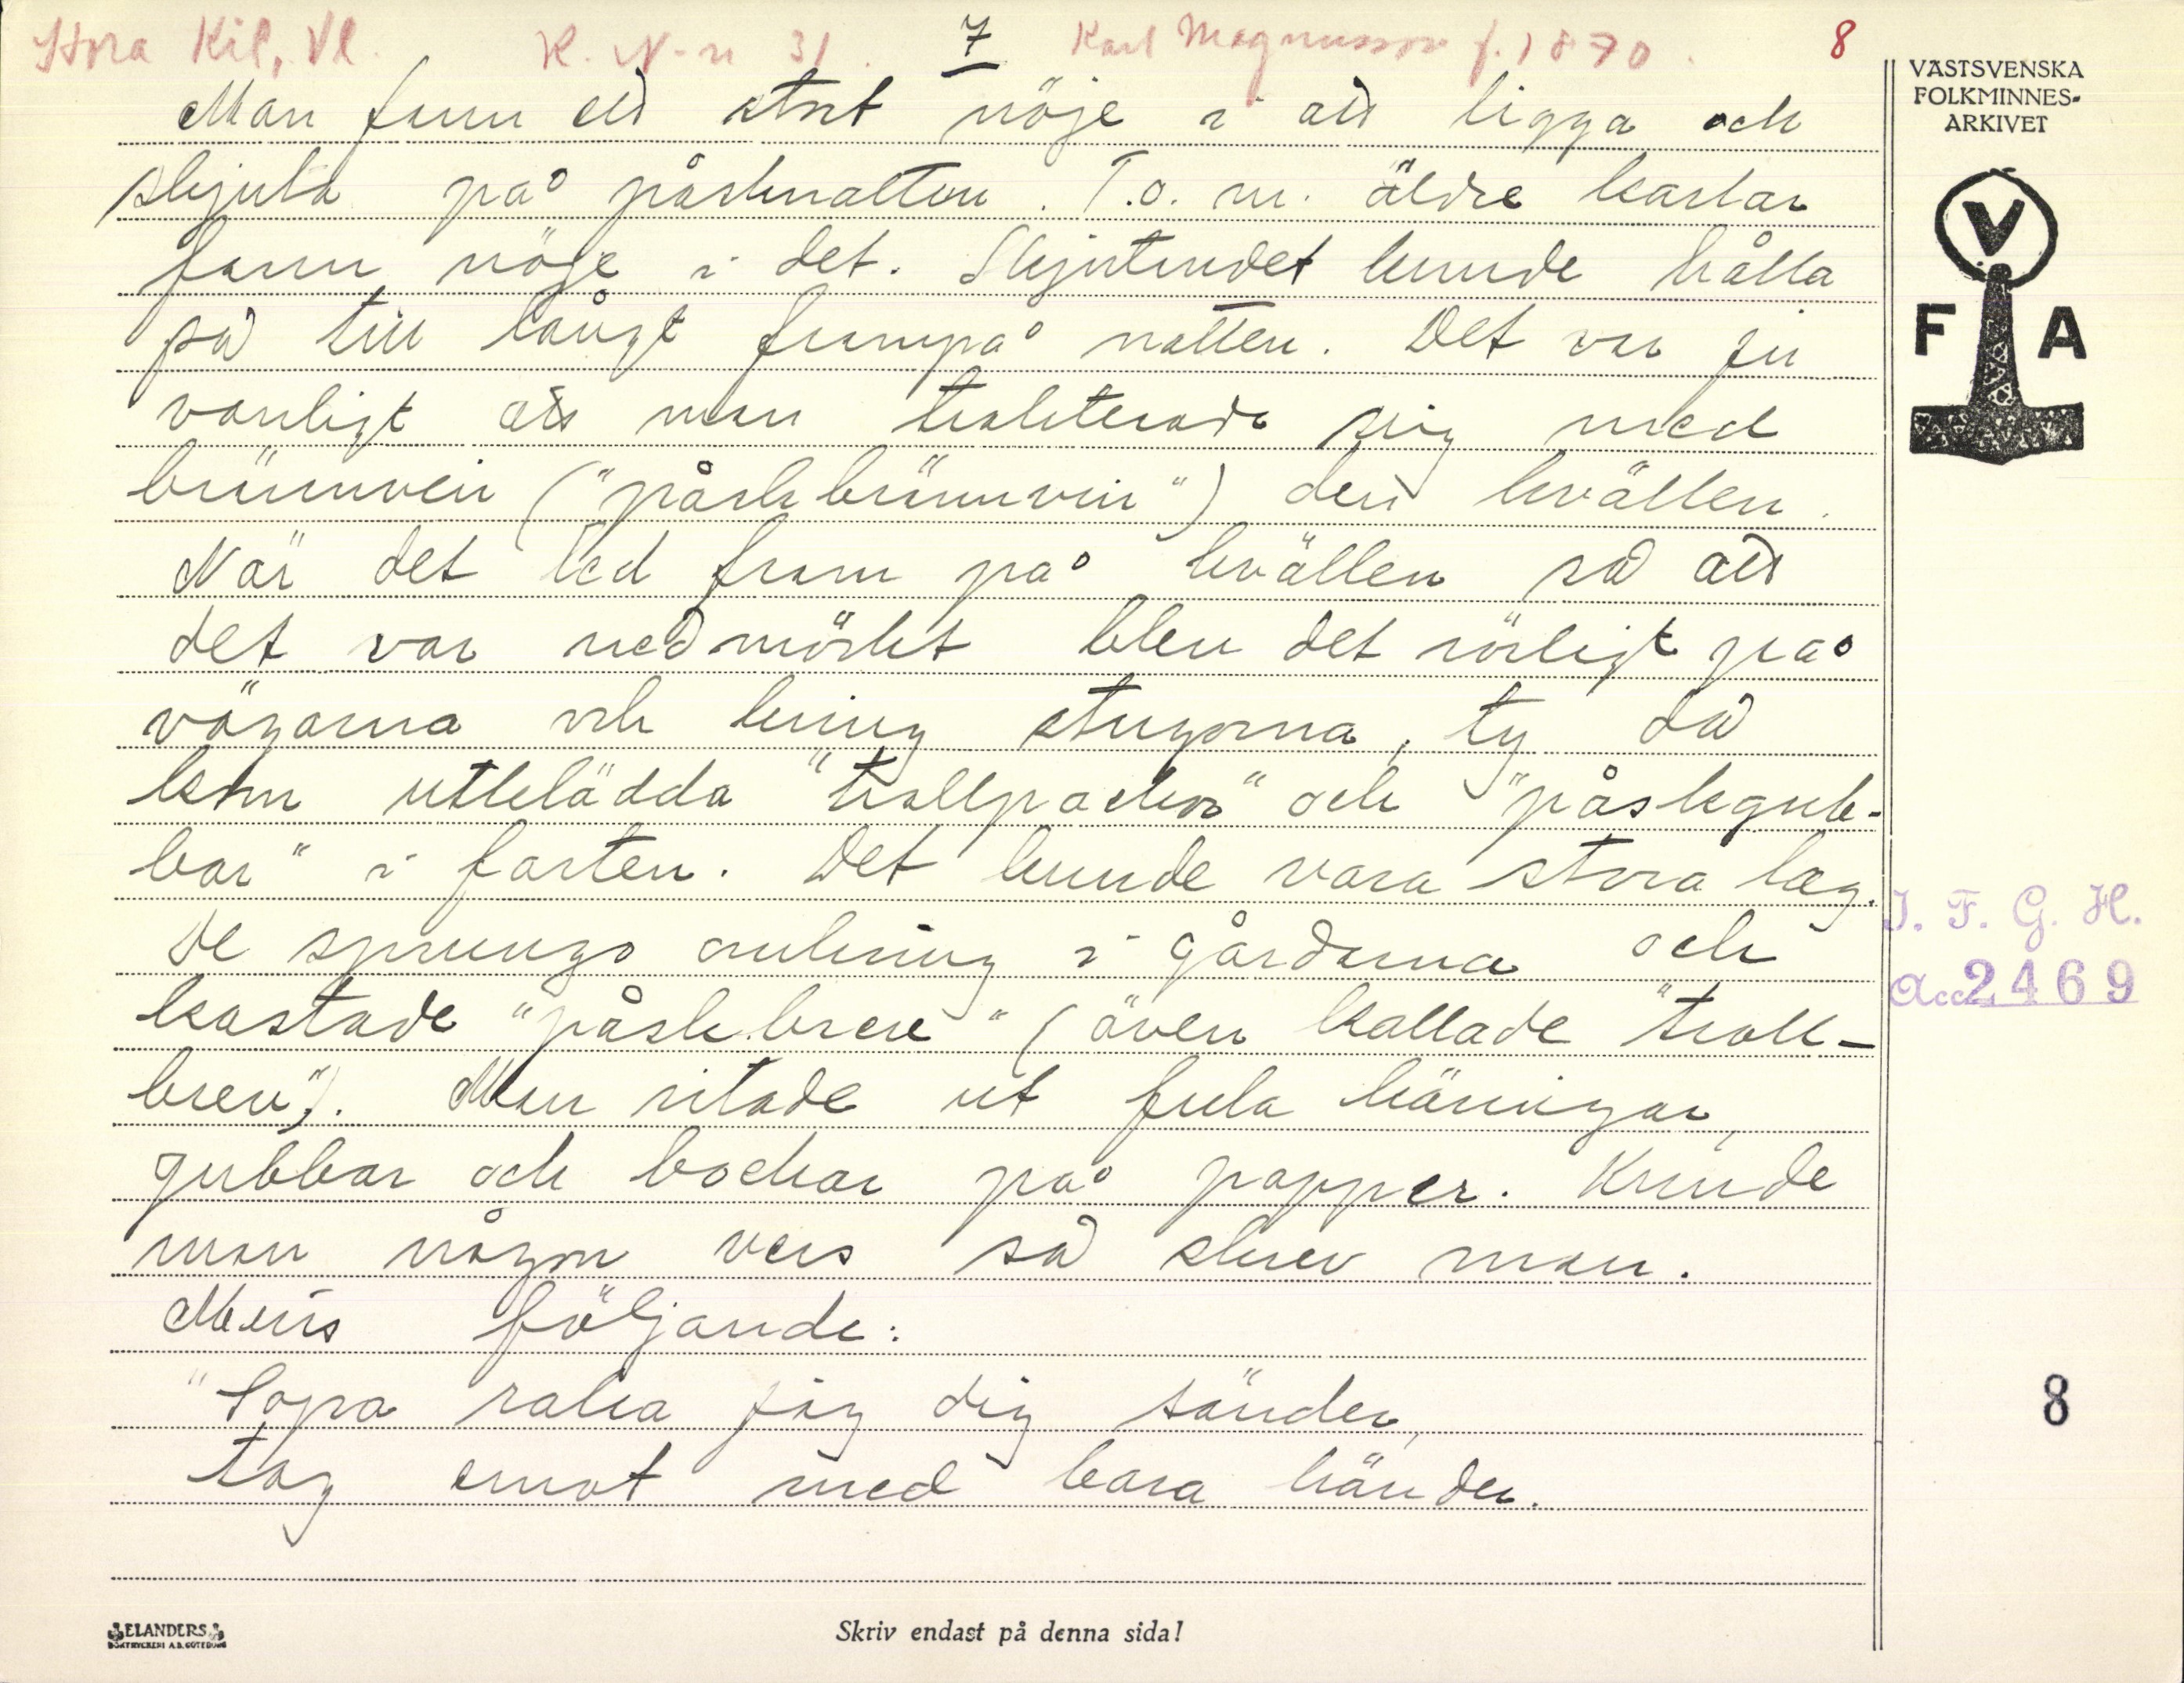 Stora Kil, Vl. K. N-n 31. 7 Karl Magnusson f. 1870. 8
Man fann ett stort nöje i att ligga och
skjuta på påsknatten. T.o.m. äldre karlar
fann nöje i det. Skjutandet kunde hålla
på till långt frampå natten. Det var ju
vanligt att man trakterade sig med
brännvin ("påskbrännvin") den kvällen.
När det led fram på kvällen så att
det var nedmörkt blev det rörligt på
vägarna och kring stugorna, ty då
kom utklädda "trollpackor" och "påskgub-
bar" i farten. Det kunde vara stora lag.
De sprungo omkring i gårdarna och
kastade "påskbrev" (även kallade "troll-
brev"). Man ritade ut fula käringar,
gubbar och bockar på papper. Kunde
man någon vers så skrev man.
Minns följande:
"Sopa raka jag dig sänder,
tag emot med bara händer.
VÄSTSVENSKA
FOLKMINNES-
ARKIVET
V
F A
I. F. G. H.
Acc. 2469
8
ELANDERS
BOKTRYCKERI A.B. GÖTEBORG
Skriv endast på denna sida!